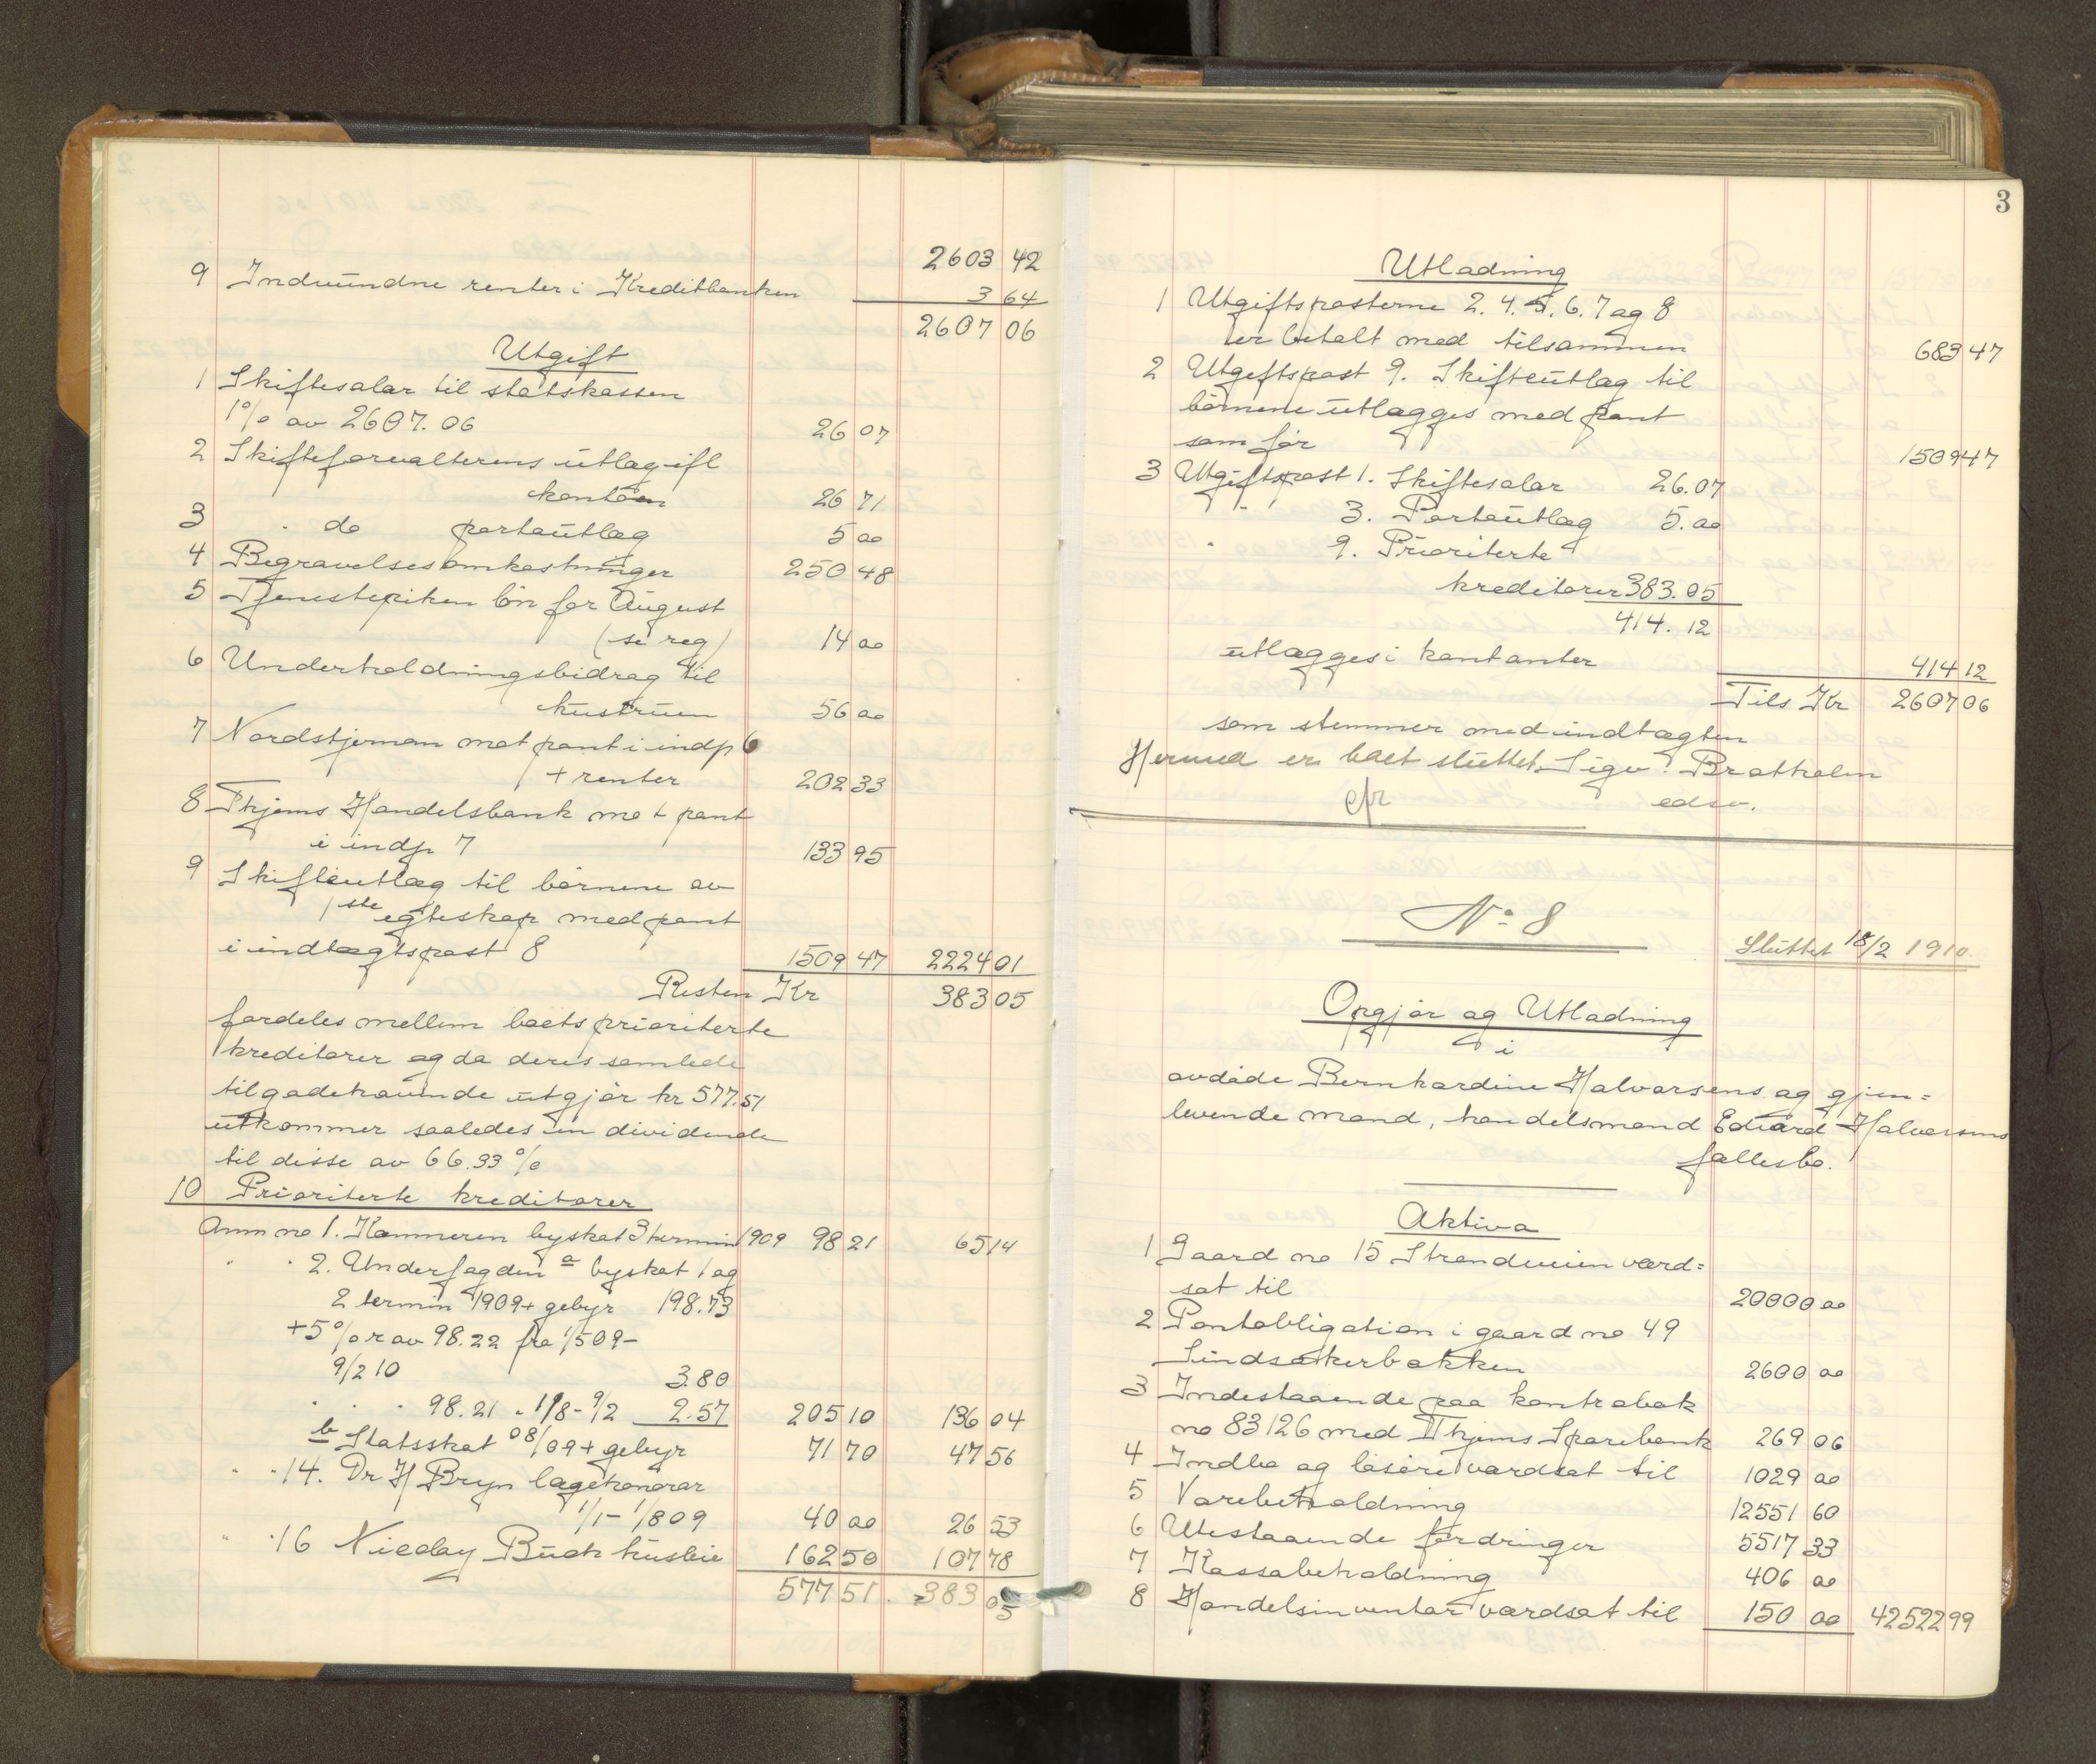 2603 42
9 Indvundne renter i Kreditbanken 3 64
2607 06
Utgift
1 Skiftesalar til statskassen
1% av 2607.06 26 07
2 Skifteforvalterens utlag ifl
kontoen 26 71
3 " do portoutlæg 5 00
4 Begravelsesomkostninger 250 48
5 Tjenestepiken lön for August
(se reg) 14 00
6 Underholdningsbidrag til
hustruen 56 00
7 Nordstjernen mot pant i indp 6
+ renter 202 33
8 Thjems Handelsbank mot pant
i indp 7 133 95
9 Skifteutlæg til børnene av
1ste egteskap med pant
i indtægtspost 8 1509 47 2224 01
Resten Kr 383 05
fordeles mellem boets prioriterte
kreditorer og da deres samlede
tilgodehavende utgjør kr 577.51
utkommer saaledes en dividende
til disse av 66.33 %
10 Prioriterte kreditorer
Anm no 1. Kæmneren byskat 3 termin 1909 98 21 65 14
" " 2. Underfogden a byskat 1 og
2 termin 1909 + gebyr 198.73
+ 5% r av 98.22 fra 1/5 09 -
9/2 10 3.80
" " " 98.21 " 1/8 - 9/2 2.57 205 10 136 04
b Statsskat 08/09 + gebyr 71 70 47 56
" " 14. Dr H Bryn lægehonorar
1/1 - 1/8 09 40 00 26 53
" " 16 Nicolay Buch husleie 162 50 107 78
577 51. 383 05
3
Utlodning
1 Utgiftsposterne 2. 4. 5. 6. 7 og 8
er betalt med tilsammen 683 47
2 Utgiftspost 9. Skifteutlæg til
børnene utlægges med pant
som før 1509 47
3 Utgiftspost 1. Skiftesalar 26.07
" " 3. Portoutlæg 5.00
" 9. Prioriterte
kreditorer 383.05
414.12
utlægges i kontanter 414 12
Tils Kr 2607 06
som stemmer med indtægten
Hermed er boet sluttet. Sigv. Bratholm
edsv.
No 8
Sluttet 18/2 1910.
Opgjør og Utlodning
i
avdøde Bernhardine Halvorsens og gjen=
levende mand, handelsmand Edvard Halvorsens
fællesbo.
Aktiva
1 Gaard no 15 Strandveien værd=
sat til 20000 00
2 Pantobligation i gaard no 49
Lindsakerbakken 2600 00
3 Indestaaende paa kontrabok
no 83126 med Thjems Sparebank 269 06
4 Indbo og løsøre værdsat til 1029 00
5 Varebeholdning 12551 60
6 Utestaaende fordringer 5517 33
7 Kassabeholdning 406 00
8 Handelsinventar værdsat til 150 00 42522 99